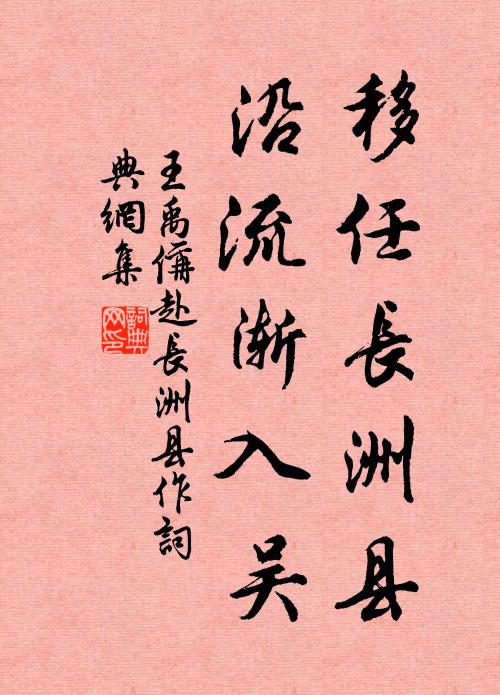 移任長洲县
沿流渐入吴
王禹偁赴長洲县作詞
典網集
詞典
网印